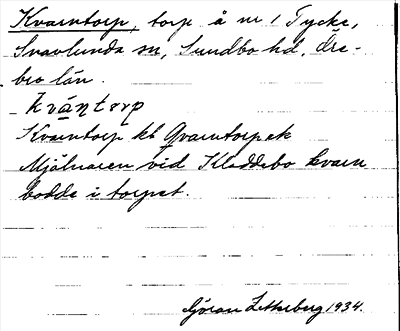 Kvarntorp, torp å nr 1 Tycke,
Svavlunda sn, Sundbo hd, Öre-
bro län.
kvä̱ṇtɔrp
Kvarntorp kb Qvarntorp ek
Mjölnaren vid Kladdebo kvarn
bodde i torpet.
Göran Zetterberg 1934.